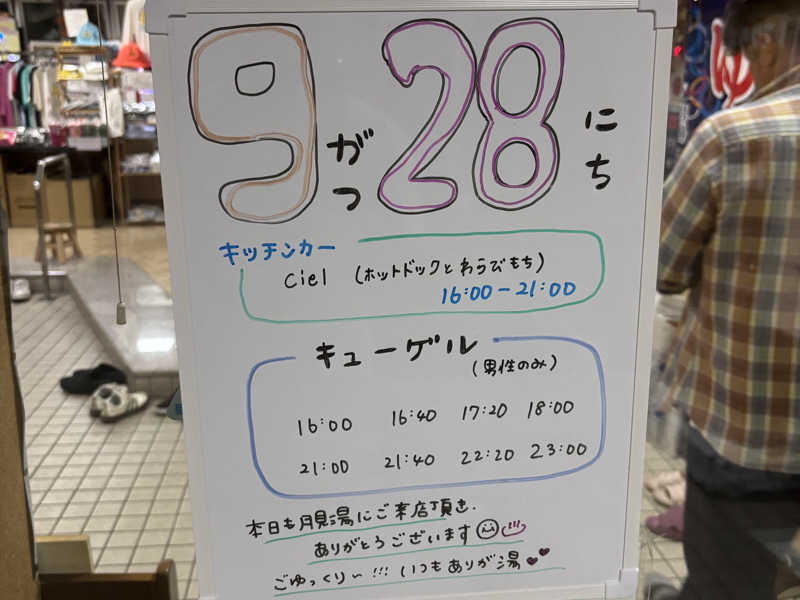 9がつ28にち
キッチンカー
ciel (ホットドックとわらびもち)
16:00-21:00
キューゲル
(男性のみ)
16:00 16:40 17:20 18:00
21:00 21:40 22:20 23:00
本日も月見湯にご来店頂き、
ありがとうございます
ごゆっくりー!!! いつもありが湯